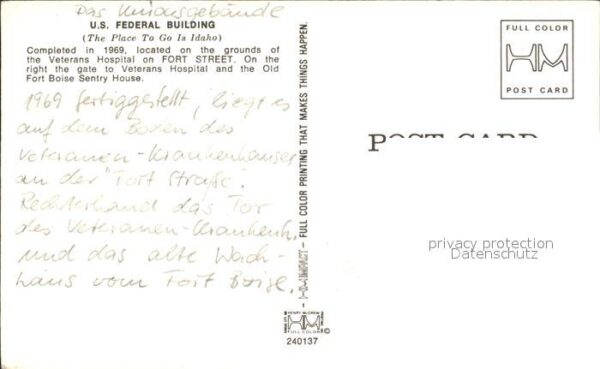 Das Unionsgebäude
U.S. FEDERAL BUILDING
(The Place To Go Is Idaho)
Completed in 1969, located on the grounds of
the Veterans Hospital on FORT STREET. On the
right the gate to Veterans Hospital and the Old
Fort Boise Sentry House.
1969 fertiggestellt, liegt es
auf dem Boden des
Veteranen-Krankenhauses
an der "Fort Straße".
Rechterhand das Tor
des Veteranen-Krankenh.
und das alte Wach-
haus vom Fort Boise.
- HM IMPACT - FULL COLOR PRINTING THAT MAKES THINGS HAPPEN.
HM
240137
FULL COLOR
HM
POST CARD
POST CARD
privacy protection
Datenschutz